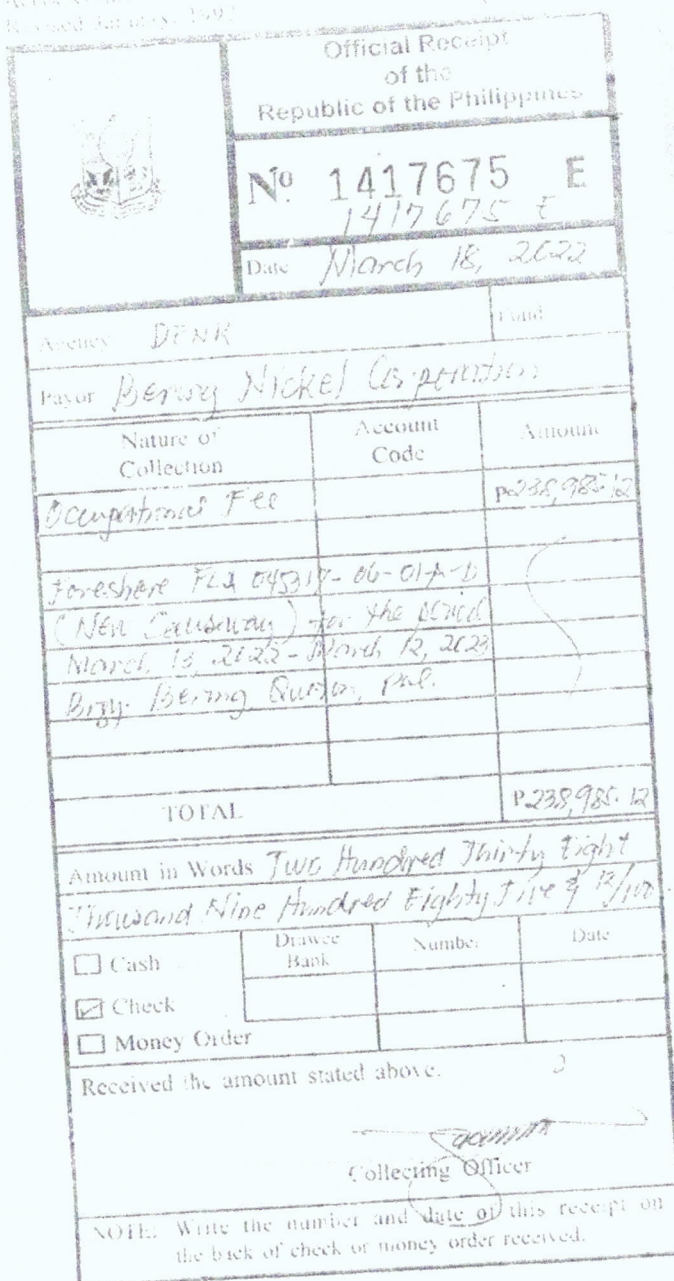 Revised January, 1992
Official Receipt
of the
Republic of the Philippines
Nº 1417675 E
1417675 E
Date March 18, 2022
Agency DENR
Fund
Payor Berong Nickel Corporation
Nature of Collection Account Code Amount
Occupational Fee P238,985.12
Foreshore FLA 045317-06-01-A-D
(New Causeway) for the period
March 13, 2022 - March 12, 2023
Brgy. Berong Quezon, Pal.
TOTAL P238,985.12
Amount in Words Two Hundred Thirty Eight
Thousand Nine Hundred Eighty Five & 12/100
Cash Drawee Bank Number Date
Check
Money Order
Received the amount stated above.
Collecting Officer
NOTE: Write the number and date of this receipt on
the back of check or money order received.